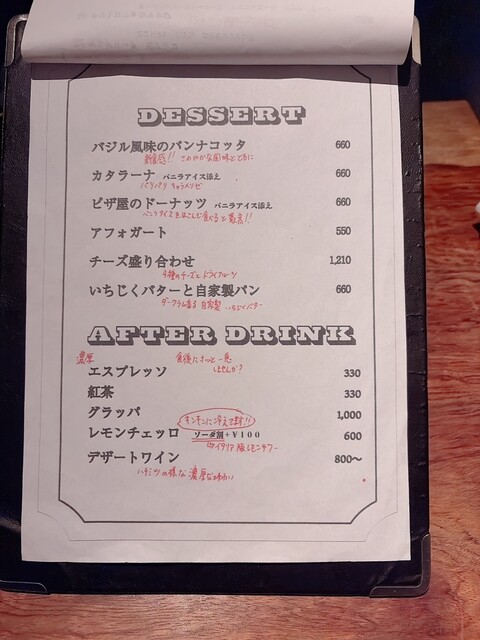 DESSERT
バジル風味のパンナコッタ 660
新食感!! さわやかな風味とともに
カタラーナ バニラアイス添え 660
パリパリ キャラメリゼ
ピザ屋のドーナッツ バニラアイス添え 660
バニラアイスをはこんで食べると最高!!
アフォガート 550
チーズ盛り合わせ 1,210
4種のチーズとドライフルーツ
いちじくバターと自家製パン 660
ダークラム香る 自家製 いちじくバター
AFTER DRINK
濃厚 食後にホッと一息
しませんか?
エスプレッソ 330
紅茶 330
グラッパ 1,000
キンキンに冷えてます!!
レモンチェッロ ソーダ割+¥100 600
イタリア版レモンサワー
デザートワイン 800〜
ハチミツの様な濃厚な味わい